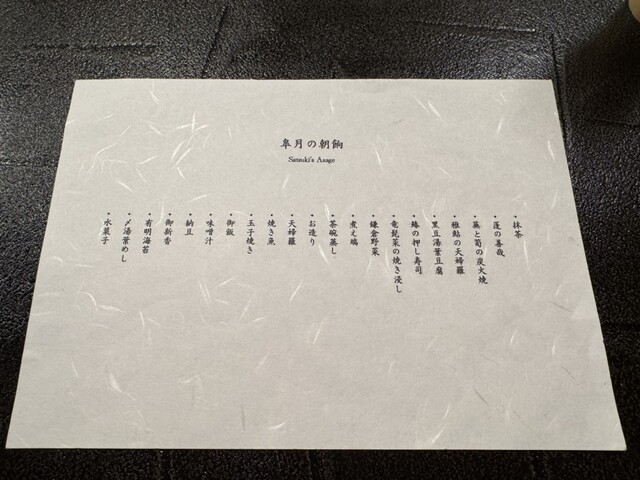 皐月の朝餉
Satsuki's Asage
・抹茶
・蓬の善哉
・蕪と筍の炭火焼
・稚鮎の天婦羅
・黒豆湯葉豆腐
・鰆の押し寿司
・竜髭菜の焼き浸し
・鎌倉野菜
・煮え端
・茶碗蒸し
・お造り
・天婦羅
・焼き魚
・玉子焼き
・御飯
・味噌汁
・納豆
・御新香
・有明海苔
・〆湯葉めし
・水菓子